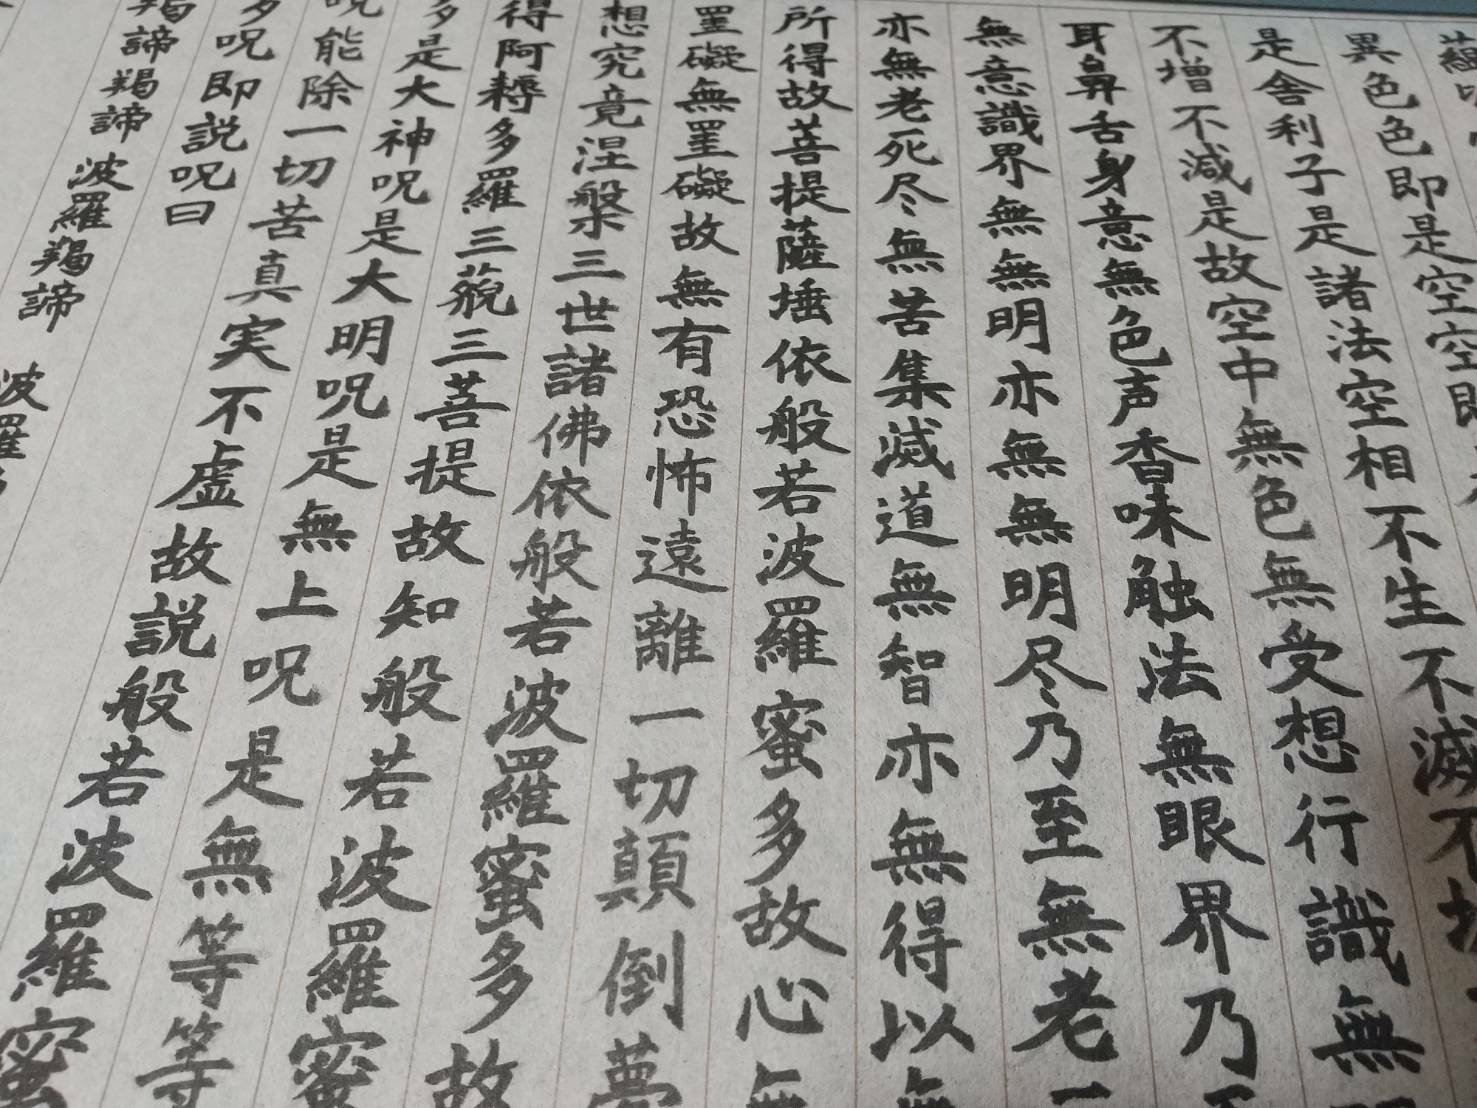 蘊
異色色即是空空即
是舎利子是諸法空相不生不滅不
不増不減是故空中無色無受想行識無
耳鼻舌身意無色声香味触法無眼界乃
無意識界無無明亦無無明尽乃至無老
亦無老死尽無苦集滅道無智亦無得以
所得故菩提薩埵依般若波羅蜜多故心無
罣礙無罣礙故無有恐怖遠離一切顛倒夢
想究竟涅槃三世諸佛依般若波羅蜜多故
得阿耨多羅三藐三菩提故知般若波羅蜜
多是大神呪是大明呪是無上呪是無等等
呪能除一切苦真実不虚故説般若波羅蜜
多呪即説呪曰
羯諦羯諦 波羅羯諦 波羅